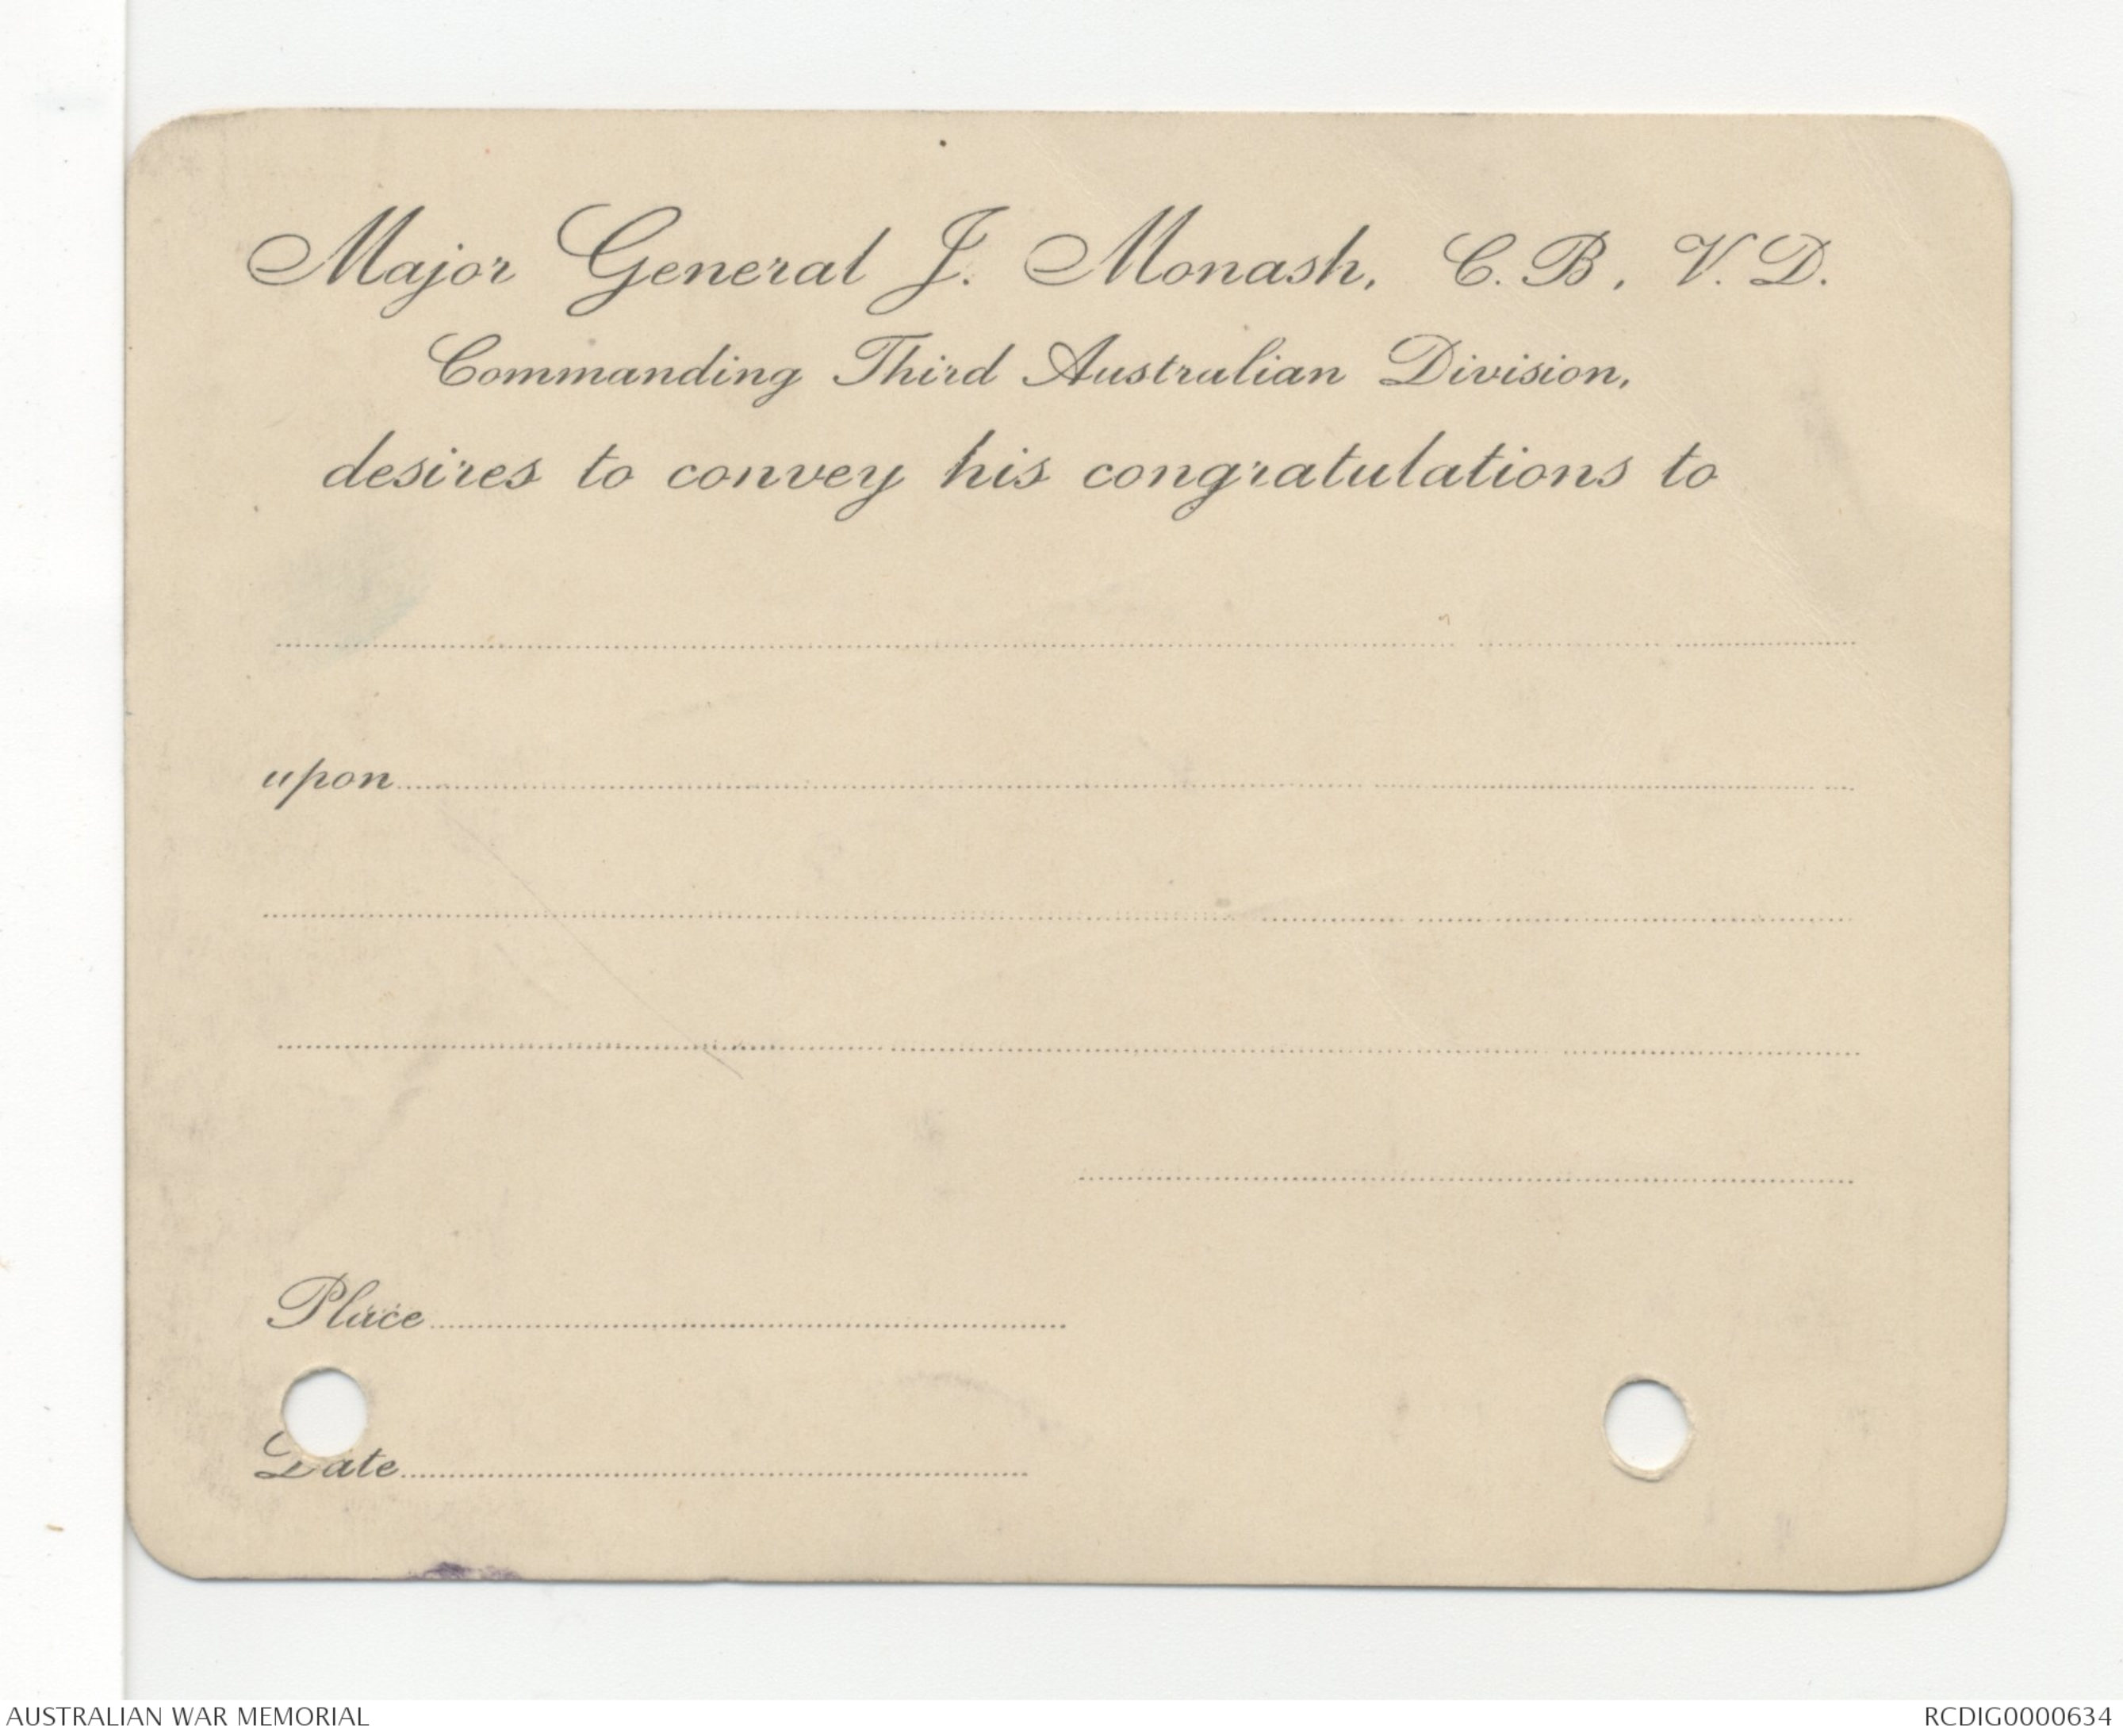 Major General J. Monash, C.B, V.D.
Commanding Third Australian Division,
desires to convey his congratulations to
upon
Place
Date
AUSTRALIAN WAR MEMORIAL
RCDIG0000634